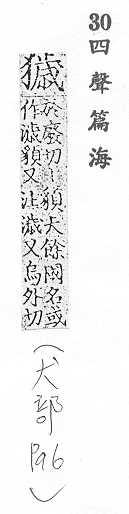 30 四聲篇海
獩
於廢切夫餘國名或
作濊又汪濊又烏外切
（犬部 P96）